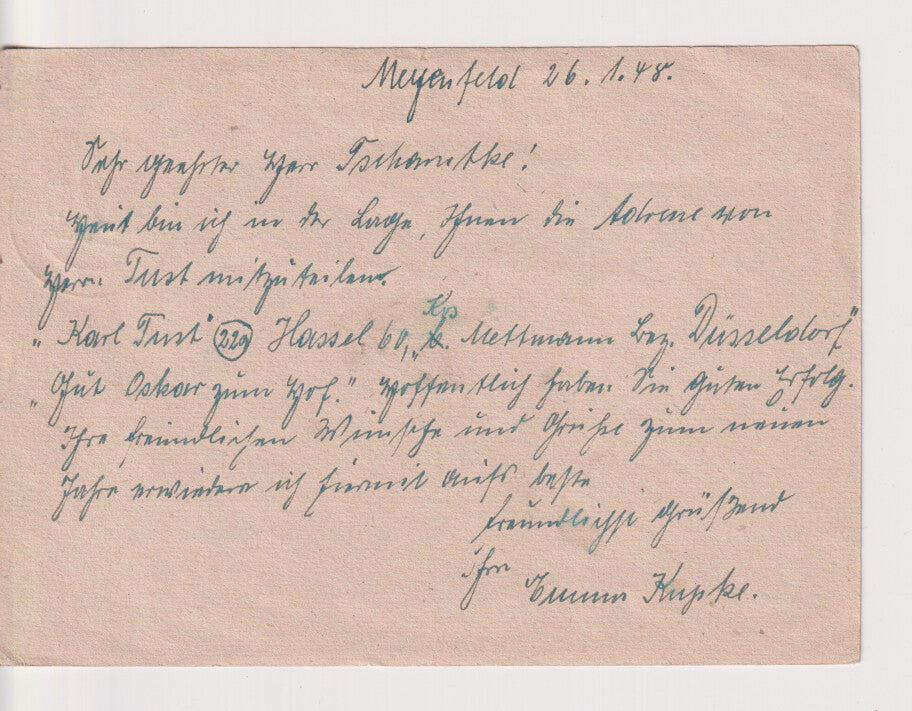 Meyenfeld 26.1.48.
Sehr geehrter Herr Tschamtke!
Heut bin ich in der Lage, Ihnen die Adresse von
Herrn Tust mitzuteilen.
"Karl Tust" (22a) Hassel 60, Krs. Mettmann Bez. Düsseldorf"
"Gut Oskar zum Hof." Hoffentlich haben Sie guten Erfolg.
Ihre freundlichen Wünsche und Grüße zum neuen
Jahre erwiedere ich hiermit aufs beste
freundlichst grüßend
Ihre
Emma Kupke.